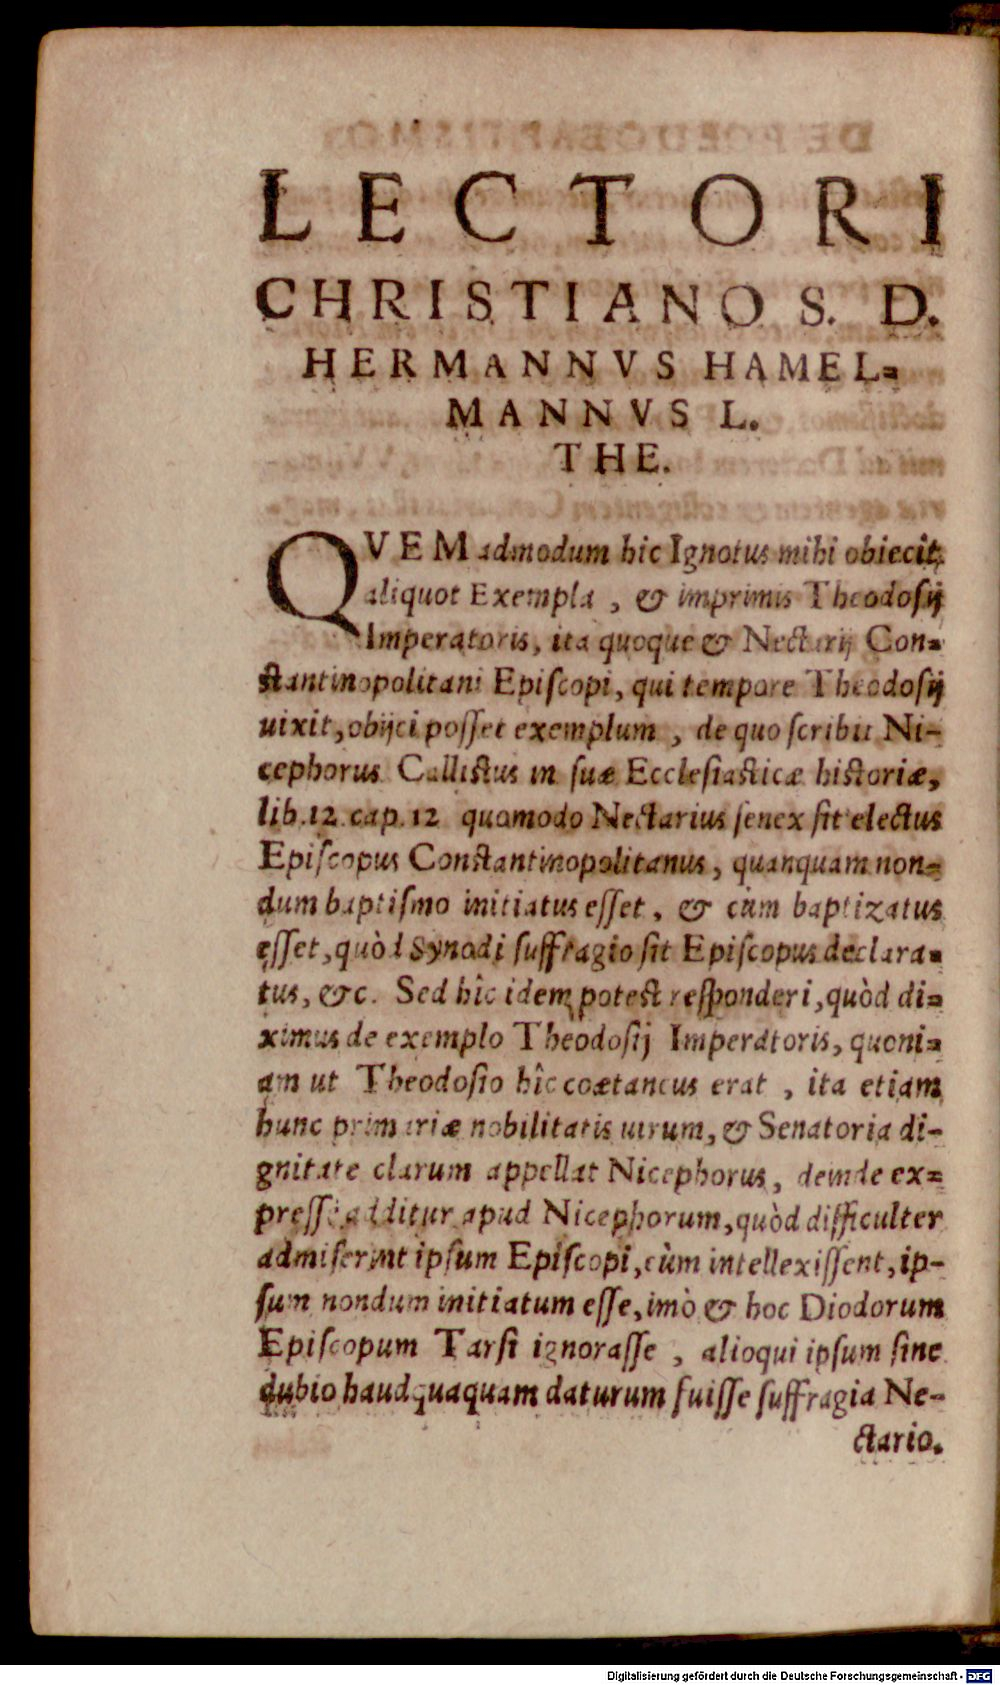 LECTORI
CHRISTIANO S. D.
HERMANNVS HAMEL=
MANNVS L.
THE.
QVEMadmodum hic Ignotus mihi obiecit
aliquot Exempla , & imprimis Theodosij
Imperatoris, ita quoque & Nectarij Con=
stantinopolitani Episcopi, qui tempore Theodosij
uixit, obijci posset exemplum , de quo scribit Ni-
cephorus Callistus in suæ Ecclesiasticæ historiæ,
lib. 12. cap. 12 quomodo Nectarius senex sit electus
Episcopus Constantinopolitanus, quanquam non=
dum baptismo initiatus esset, & cùm baptizatus
esset, quòd Synodi suffragio sit Episcopus declara=
tus, &c. Sed hîc idem potest responderi, quòd di=
ximus de exemplo Theodosij Imperatoris, quoni=
am ut Theodosio hîc coætaneus erat , ita etiam
hunc primariæ nobilitatis uirum, & Senatoria di-
gnitate clarum appellat Nicephorus, deinde ex=
pressè additur apud Nicephorum, quòd difficulter
admiserint ipsum Episcopi, cùm intellexissent, ip-
sum nondum initiatum esse, imò & hoc Diodorum
Episcopum Tarsi ignorasse , alioqui ipsum sine
dubio haudquaquam daturum fuisse suffragia Ne-
ctario.
Digitalisierung gefördert durch die Deutsche Forschungsgemeinschaft - DFG